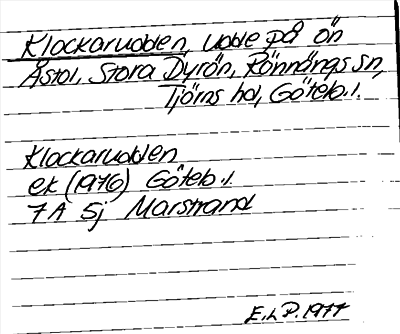 Klockarudden, udde på ön
Åstol, Stora Dyrön, Rönnängs sn,
Tjörns hd, Göteb. l.
Klockarudden
ek (1976) Göteb. l.
7A 5j Marstrand
E. L P. 1977